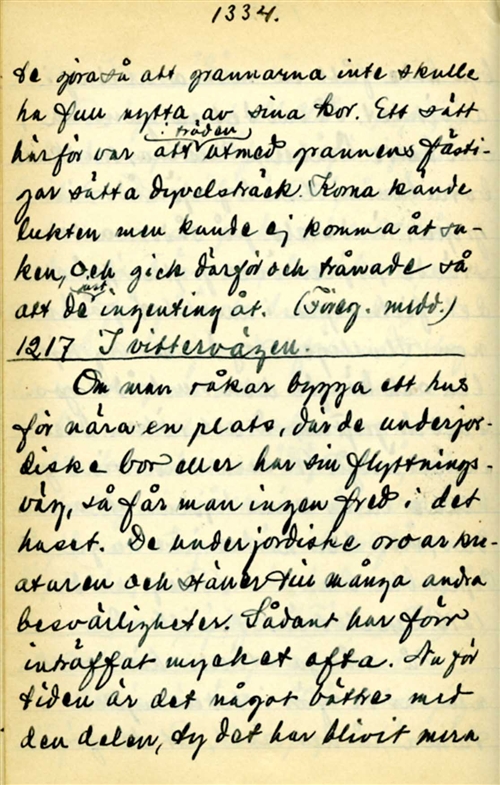 1334.
te göra så att grannarna inte skulle
ha full nytta av sina kor. Ett sätt
härför var att i träden utmed grannens fästi-
gar sätta dyvelsträck. Korna kände
lukten men kunde ej komma åt sa-
ken, och gick därför och trånade så
att de rast ingenting åt. (Föreg. medd.)
1217 I vittervägen.
Om man råkar bygga ett hus
för nära en plats, där de underjor-
diske bor eller har sin flyttnings-
väg, så får man ingen fred i det
huset. De underjordiske oroar kre-
aturen och ställer till många andra
besvärligheter. Sådant har förr
inträffat mycket ofta. Nu för
tiden är det något bättre med
den delen, ty det har blivit mera